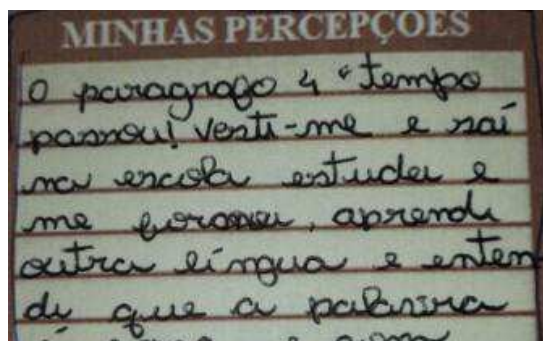 MINHAS PERCEPÇÕES
O paragrafo 4 "tempo
passou! Vesti-me e saí
na escola estudei e
me formei, aprendi
outra língua e enten
di que a palavra